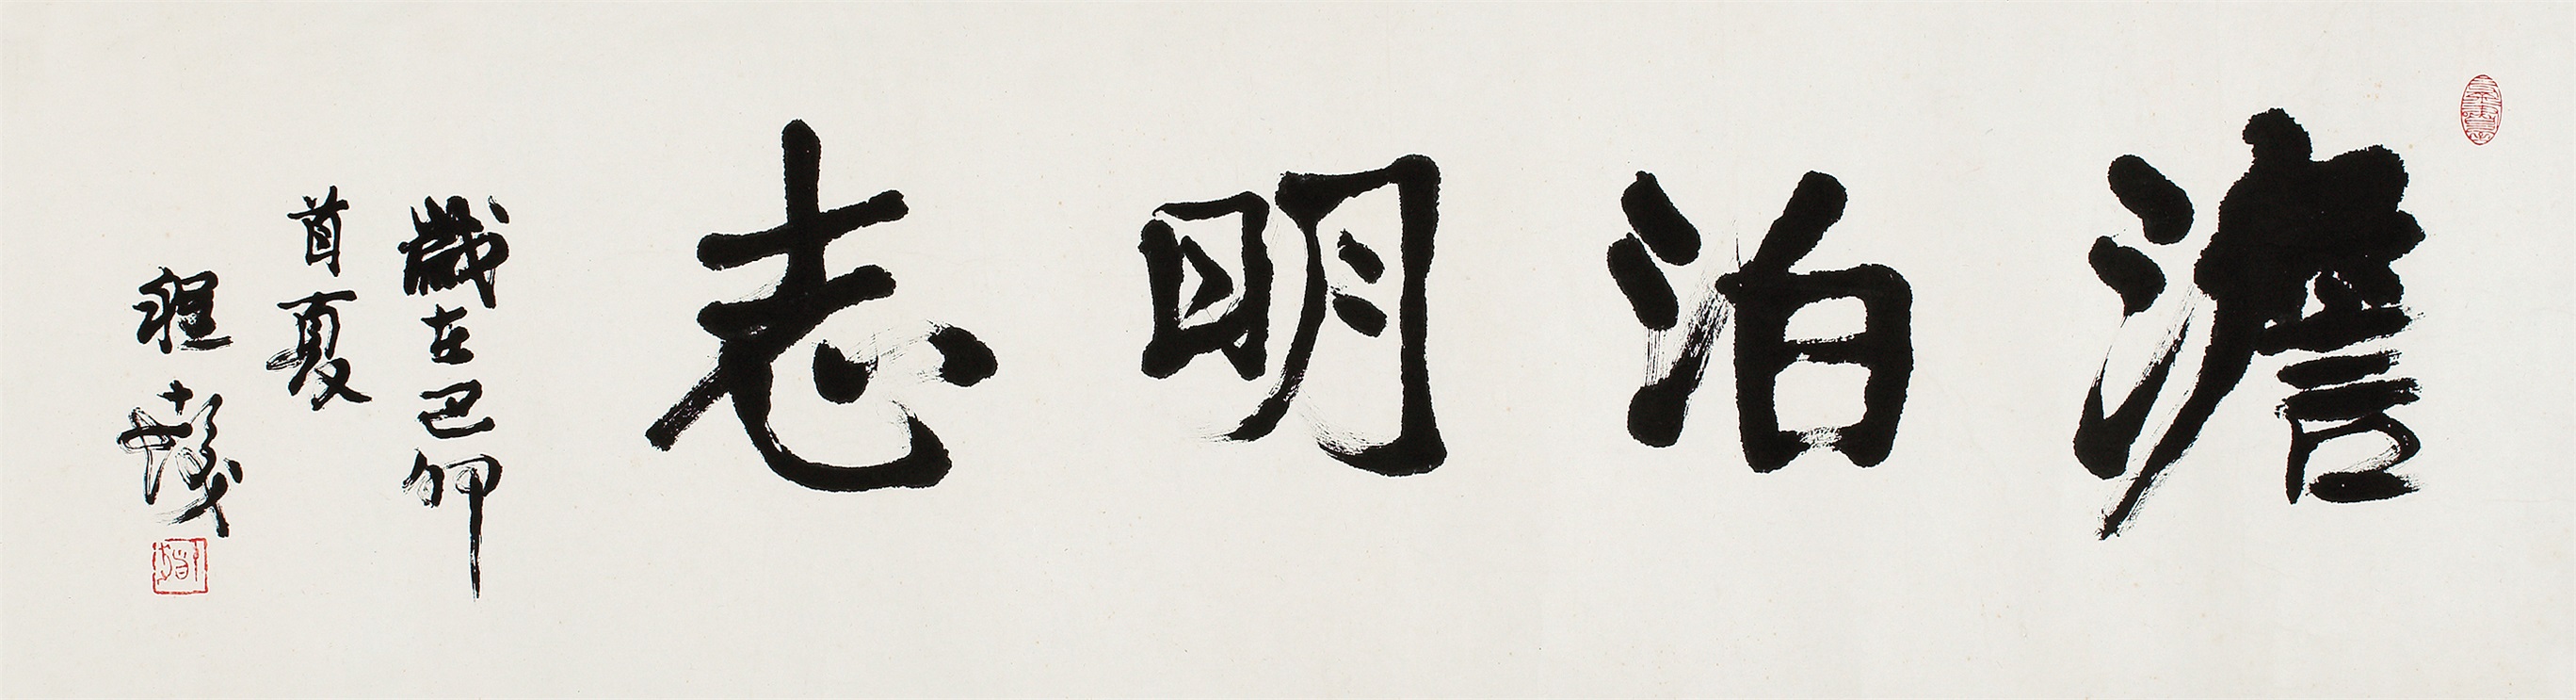 澹泊明志
歲在己卯
首夏
程十髮